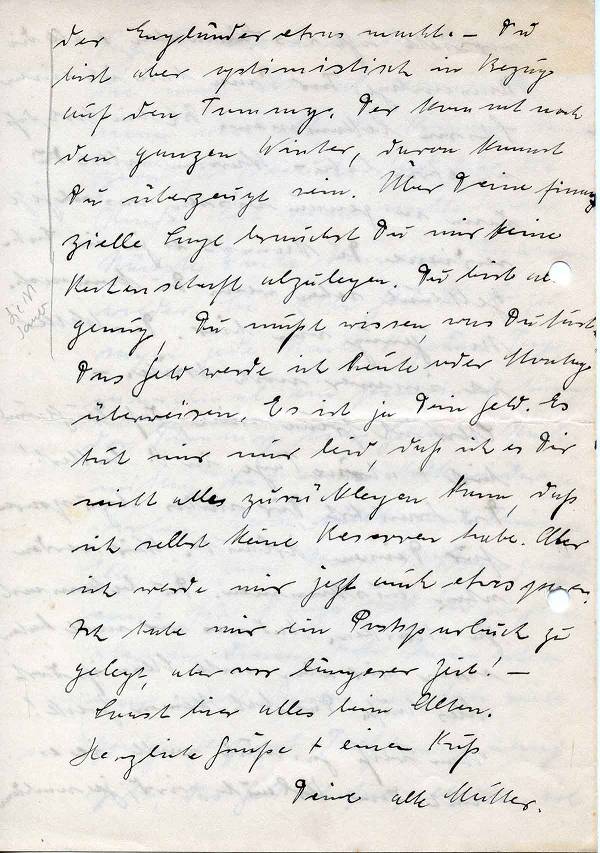 der Engländer etwas macht. – Du
bist aber optimistisch in Bezug
auf den Tommy. Der kommt noch
den ganzen Winter, davon kannst
Du überzeugt sein. Über Deine finan-
zielle Lage brauchst Du mir keine
Rechenschaft abzulegen. Du bist al
genug, Du mußt wissen, was Du tust.
Das Geld werde ich heute oder Montag
überweisen. Es ist ja Dein Geld. Es
tut mir nur leid, daß ich es Dir
nicht alles zurücklegen kann, daß
ich selbst keine Reserven habe. Aber
ich werde mir jetzt auch etwas sparen.
Ich habe mir ein Postsparbuch zu
gelegt, aber vor längerer Zeit! –
Sonst hier alles beim Alten.
Herzliche Grüße + einen Kuß
Deine alte Mutter.